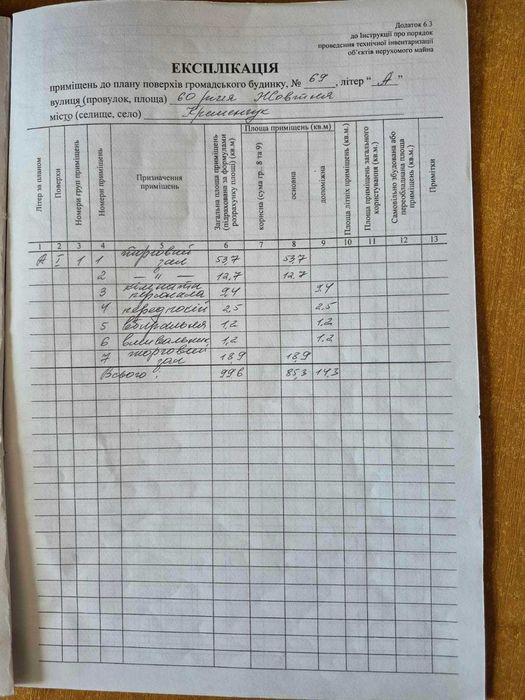 Додаток 6.3
до Інструкції про порядок
проведення технічної інвентаризації
об'єктів нерухомого майна
ЕКСПЛІКАЦІЯ
приміщень до плану поверхів громадського будинку, № 69, літер "А"
вулиця (провулок, площа) 60 річчя Жовтня
місто (селище, село) Кременчук
Літер за планом
Поверхи
Номери груп приміщень
Номери приміщень
Призначення приміщень
Загальна площа приміщень (підрахована за формулами розрахунку площі) (кв.м)
Площа приміщень (кв.м)
корисна (сума гр. 8 та 9)
основна
допоміжна
Площа літніх приміщень (кв.м.)
Площа приміщень загального користування (кв.м.)
Самовільно збудована або переобладнана площа приміщень (кв.м)
Примітки
1 2 3 4 5 6 7 8 9 10 11 12 13
А I 1 1 торговий зал 53,7 53,7
2 — " — 12,7 12,7
3 кімната персонала 9,4 9,4
4 2,5 2,5
5 вбиральня 1,2 1,2
6 1,2 1,2
7 торговий зал 18,9 18,9
Всього: 99,6 85,3 14,3